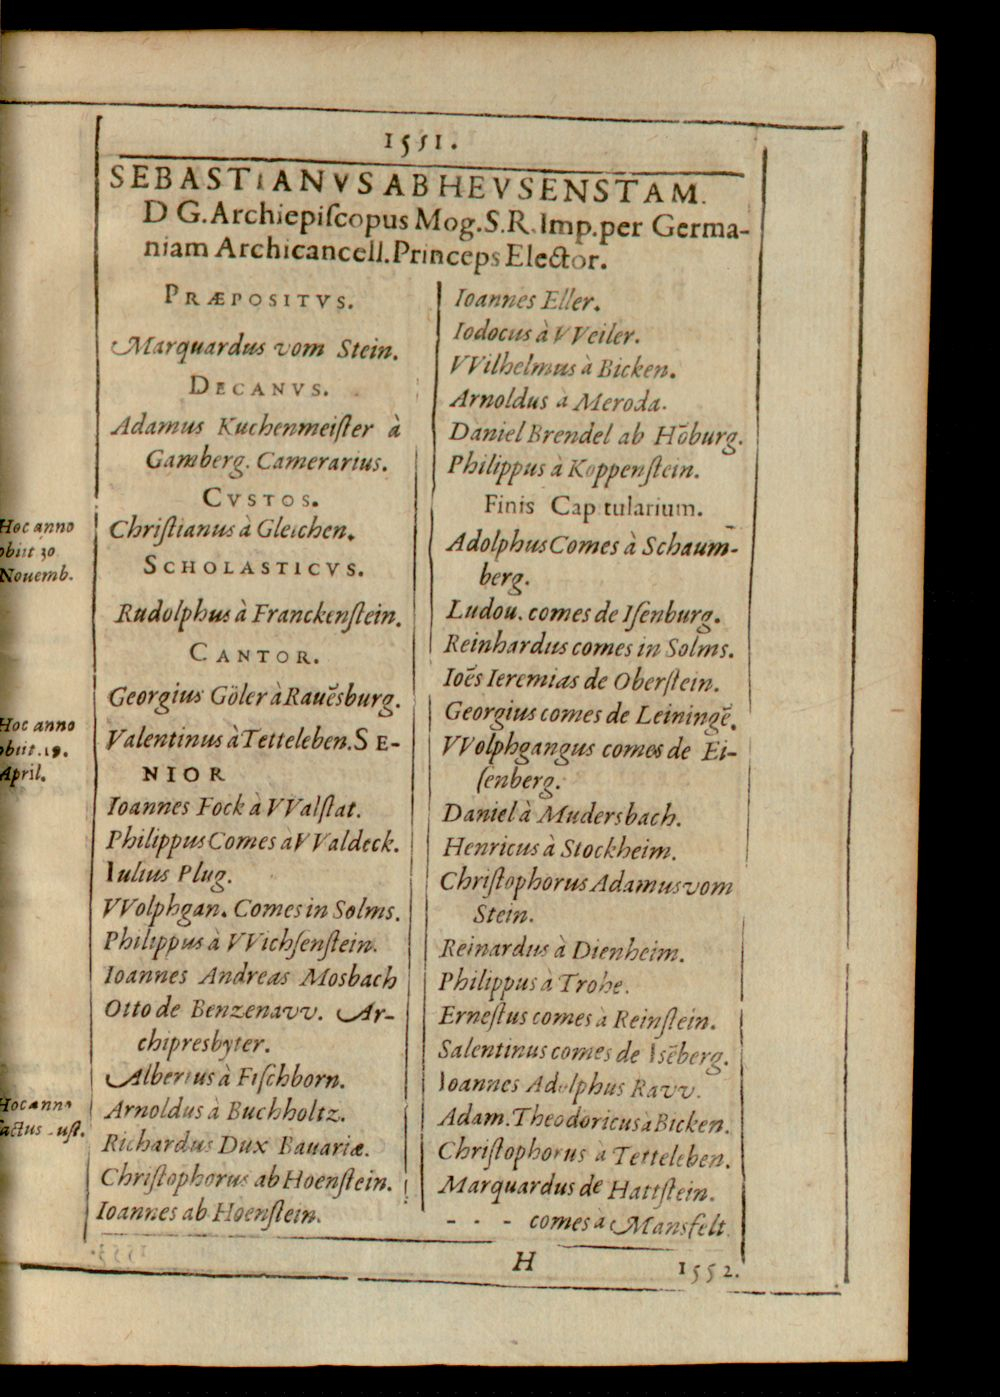 1551.
SEBASTIANVS AB HEVSENSTAM.
D G. Archiepiſcopus Mog. S. R. Imp. per Germa-
niam Archicancell. Princeps Elector.
PRÆPOSITVS.
Marquardus vom Stein.
DECANVS.
Adamus Kuchenmeiſter à
Gamberg. Camerarius.
CVSTOS.
Hoc anno
obiit 30
Nouemb.
Chriſtianus à Gleichen.
SCHOLASTICVS.
Rudolphus à Franckenſtein.
CANTOR.
Georgius Göler à Rauēsburg.
Hoc anno
obiit. 19.
April.
Valentinus à Tetteleben. SE-
NIOR
Ioannes Fock à VValſtat.
Philippus Comes à VValdeck.
Iulius Plug.
VVolphgan. Comes in Solms.
Philippus à VVichſenſtein.
Ioannes Andreas Mosbach
Otto de Benzenavv. Ar-
chipresbyter.
Albertus à Fiſchborn.
Hoc anno
factus
Arnoldus à Buchholtz.
Richardus Dux Bauariæ.
Chriſtophorus ab Hoenſtein.
Ioannes ab Hoenſtein.
Ioannes Eller.
Iodocus à VVeiler.
VVilhelmus à Bicken.
Arnoldus à Meroda.
Daniel Brendel ab Hōburg.
Philippus à Koppenſtein.
Finis Cap tularium.
Adolphus Comes à Schaum̄-
berg.
Ludou. comes de Iſenburg.
Reinhardus comes in Solms.
Ioēs Ieremias de Oberſtein.
Georgius comes de Leiningē.
VVolphgangus comes de Ei-
ſenberg.
Daniel à Mudersbach.
Henricus à Stockheim.
Chriſtophorus Adamus vom
Stein.
Reinardus à Dienheim.
Philippus à Trohe.
Erneſtus comes à Reinſtein.
Salentinus comes de Iſēberg.
Ioannes Adolphus Ravv.
Adam. Theodoricus à Bicken.
Chriſtophorus à Tetteleben.
Marquardus de Hattſtein.
- - - comes à Mansfelt
H
1552.